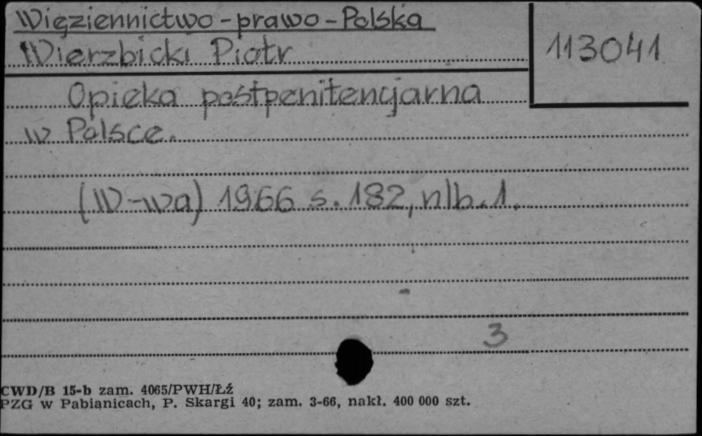 Więziennictwo - prawo - Polska
Wierzbicki Piotr
113041
Opieka postpenitencjarna
w Polsce.
(W-wa) 1966 s. 182, nlb. 1.
3
CWD/B 15-b zam. 4065/PWH/Łź
PZG w Pabianicach, P. Skargi 40; zam. 3-66, nakł. 400 000 szt.